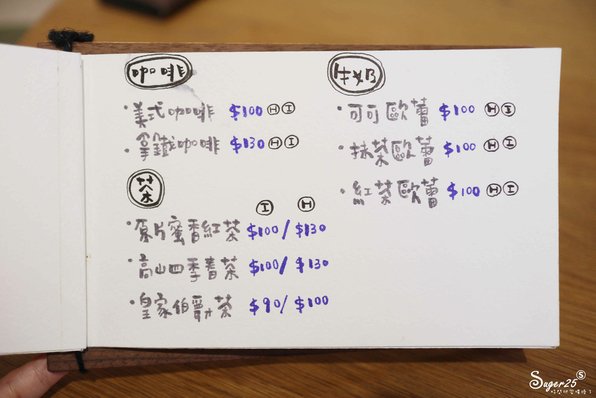 咖啡
·美式咖啡 $100 Ⓗ Ⓘ
·拿鐵咖啡 $130 Ⓗ Ⓘ
茶
Ⓘ Ⓗ
·原片蜜香紅茶 $100/$130
·高山四季春茶 $100/$130
·皇家伯爵茶 $90/$100
牛奶
·可可歐蕾 $100 Ⓗ Ⓘ
·抹茶歐蕾 $100 Ⓗ Ⓘ
·紅茶歐蕾 $100 Ⓗ Ⓘ
Suger25 Ⓢ